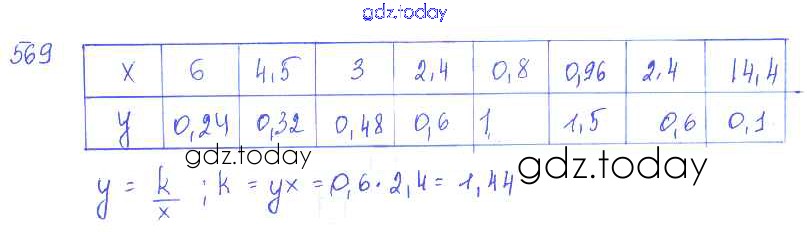 gdz.today
569
x 6 4,5 3 2,4 0,8 0,96 2.4 14,4
y 0,24 0,32 0,48 0,6 1 1,5 0,6 0,1
gdz.today
gdz.today
y = k/x ; k = yx = 0,6 · 2,4 = 1,44